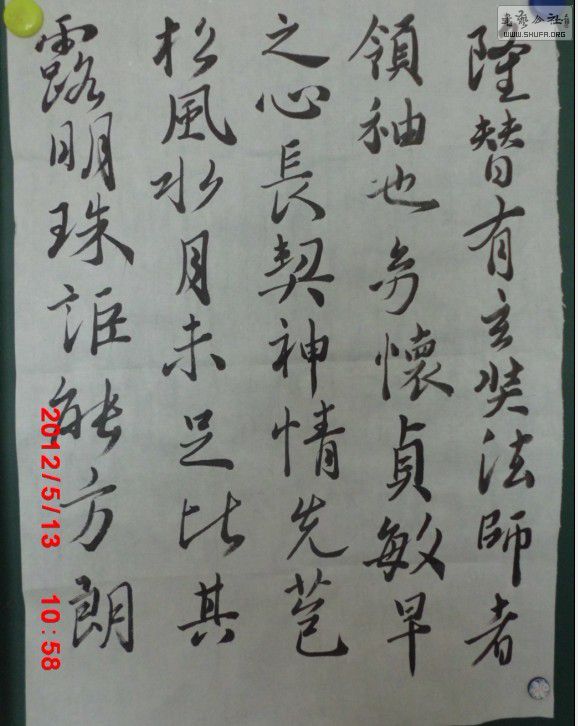 隆替有玄奘法師者
領袖也幼懷貞敏早
之心長契神情先苞
松風水月未足比其
露明珠詎能方朗
2012/5/13 10:58
WWW.SHUFA.ORG